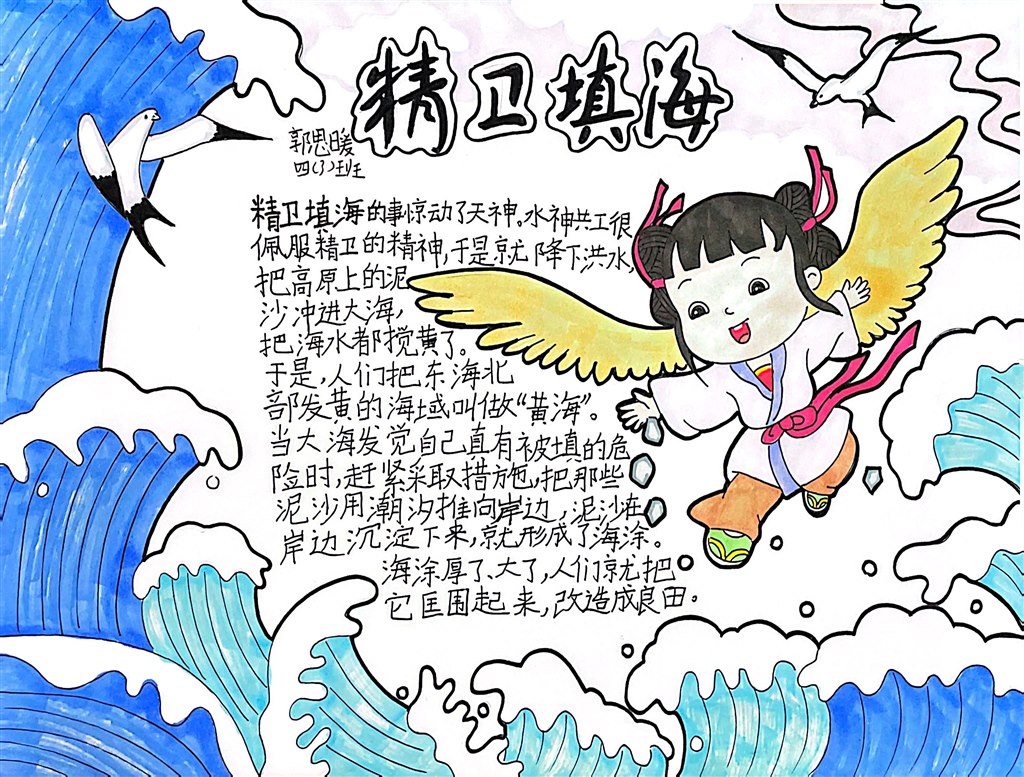 精卫填海
郭思暖
四(3)班
精卫填海的事惊动了天神。水神共工很
佩服精卫的精神,于是就降下洪水,
把高原上的泥
沙冲进大海,
把海水都搅黄了。
于是,人们把东海北
部发黄的海域叫做“黄海”。
当大海发觉自己真有被填的危
险时,赶紧采取措施,把那些
泥沙用潮汐推向岸边,泥沙在
岸边沉淀下来,就形成了海涂。
海涂厚了、大了,人们就把
它匡围起来,改造成良田。